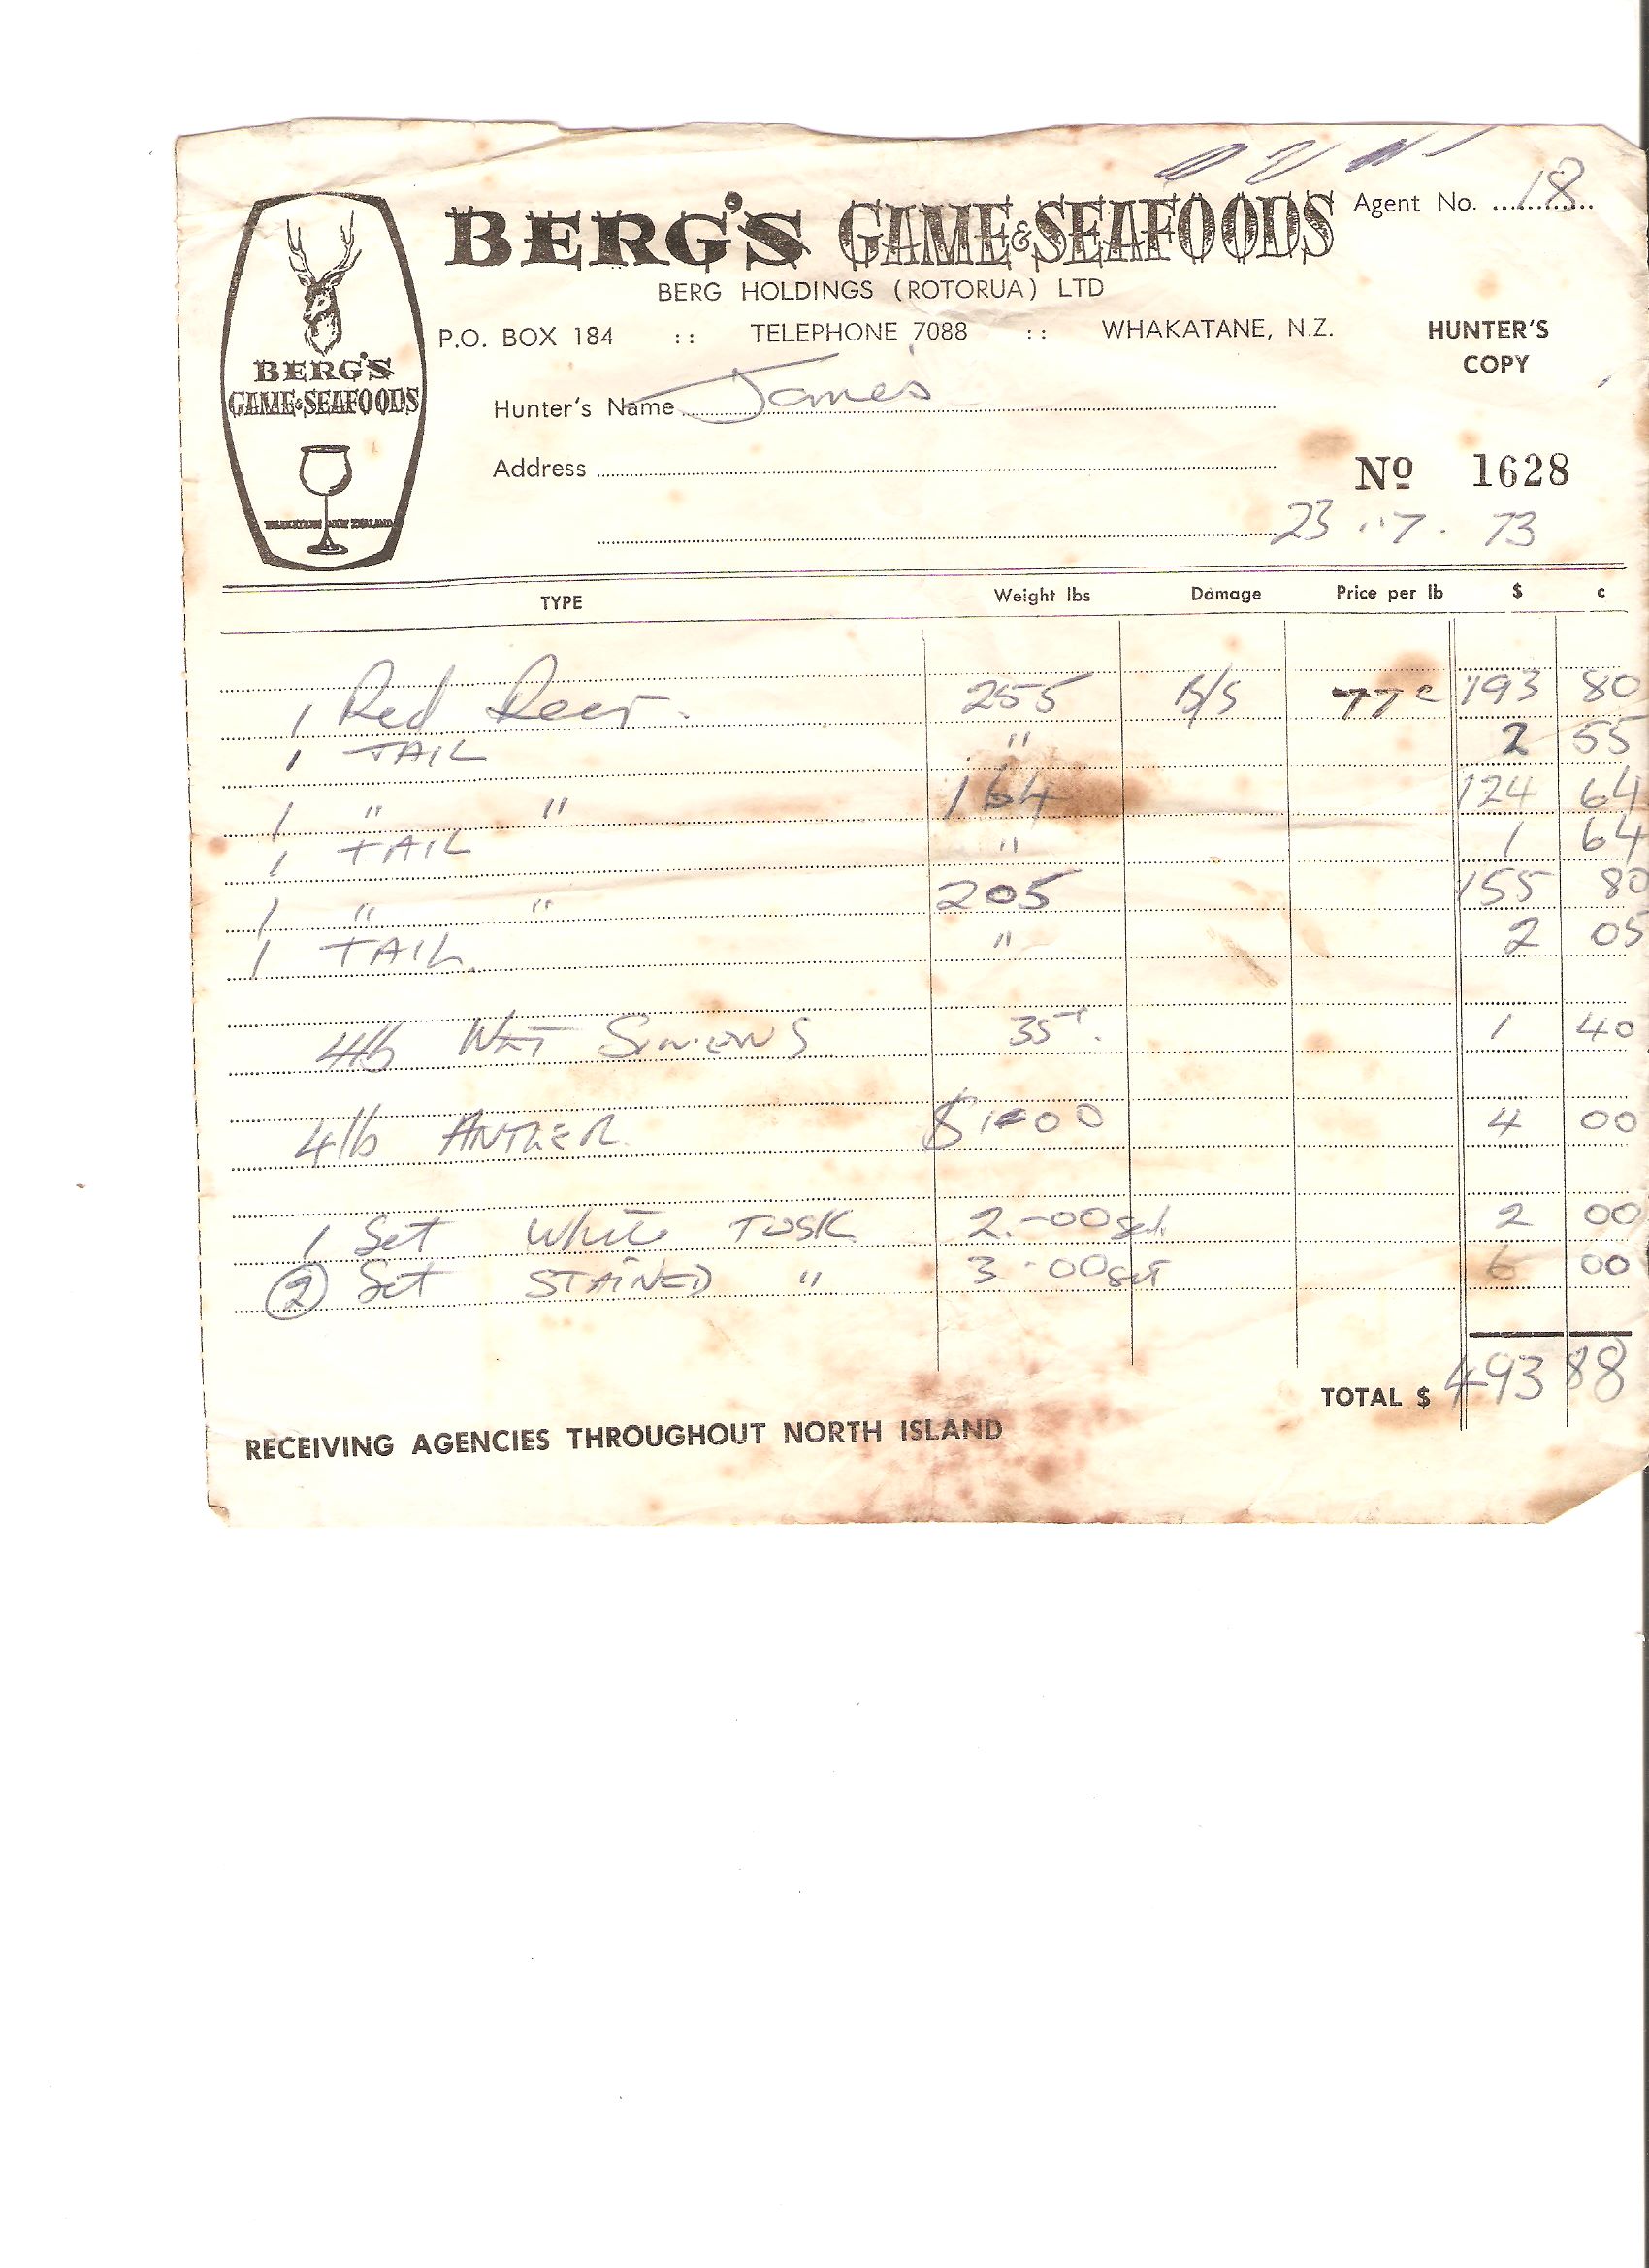 Agent No. 18
BERG'S GAME & SEAFOODS
BERG HOLDINGS (ROTORUA) LTD
P.O. BOX 184 :: TELEPHONE 7088 :: WHAKATANE, N.Z.
HUNTER'S COPY
BERG'S
GAME & SEAFOODS
WHAKATANE NEW ZEALAND
Hunter's Name James
Address
No 1628
23 . 7 . 73
TYPE Weight lbs Damage Price per lb $ c
1 Red Deer. 255 B/S 77c 193 80
1 TAIL " 2 55
1 " " 164 124 64
1 TAIL " 1 64
1 " " 205 155 80
1 TAIL. " 2 05
4lb WET SINEWS 35 1 40
4lb ANTLER. $1-00 4 00
1 Set White TUSK 2.-00 set 2 00
2 Set STAINED " 3-00 set 6 00
TOTAL $ 493 88
RECEIVING AGENCIES THROUGHOUT NORTH ISLAND